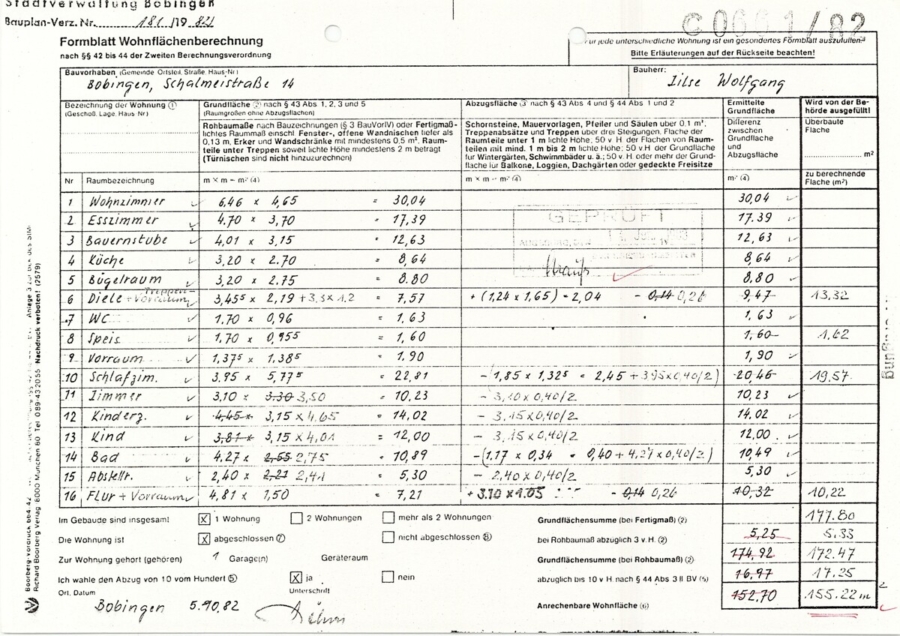 Stadtverwaltung Bobingen
Bauplan-Verz. Nr. 181/1982
C0661/82
Formblatt Wohnflächenberechnung
nach §§ 42 bis 44 der Zweiten Berechnungsverordnung
Für jede unterschiedliche Wohnung ist ein gesondertes Formblatt auszufüllen!
Bitte Erläuterungen auf der Rückseite beachten!
Bauvorhaben (Gemeinde Ortsteil, Straße, Haus-Nr.)
Bobingen, Schalmeistraße 14
Bauherr:
Zilse Wolfgang
Bezeichnung der Wohnung ①
(Geschoß, Lage, Haus Nr.)
Grundfläche ② nach § 43 Abs 1, 2, 3 und 5
(Raumgrößen ohne Abzugsflächen)
Rohbaumaße nach Bauzeichnungen (§ 3 BauVorlV) oder Fertigmaß-
lichtes Raummaß einschl. Fenster-, offene Wandnischen tiefer als
0,13 m, Erker und Wandschränke mit mindestens 0,5 m², Raum-
teile unter Treppen soweit lichte Höhe mindestens 2 m beträgt
(Türnischen sind nicht hinzuzurechnen)
Abzugsfläche ③ nach § 43 Abs 4 und § 44 Abs 1 und 2
Schornsteine, Mauervorlagen, Pfeiler und Säulen über 0,1 m²,
Treppenabsätze und Treppen über drei Steigungen, Fläche der
Raumteile unter 1 m lichte Höhe; 50 v. H. der Flächen von Raum-
teilen mit mind. 1 m bis 2 m lichte Höhe; 50 v.H. der Grundfläche
für Wintergärten, Schwimmbäder u. ä.; 50 v.H. oder mehr der Grund-
fläche für Balkone, Loggien, Dachgärten oder gedeckte Freisitze
Ermittelte Grundfläche
Differenz zwischen Grundfläche und Abzugsfläche
Wird von der Behörde ausgefüllt!
Überbaute Fläche
m²
zu berechnende Fläche (m²)
Nr Raumbezeichnung m × m = m² (4) m × m = m² (4) m² (4)
1 Wohnzimmer 6,46 x 4,65 = 30,04 30,04
2 Esszimmer 4,70 x 3,70 = 17,39 17.39
3 Bauernstube 4,01 x 3,15 = 12,63 12,63
4 Küche 3,20 x 2.70 = 8,64 8,64
5 Bügelraum 3,20 x 2.75 = 8.80 8.80
6 Diele + Treppen-Vorraum 3,45⁵ x 2,19 + 3,3 x 1.2 = 7,57 + (1,24 x 1,65) = 2,04 - 0,14 0,26 9,47 13,32
7 WC 1.70 x 0,96 = 1,63 1,63
8 Speis 1.70 x 0,95⁵ = 1,60 1,60 1,62
9 Vorraum 1,37⁵ x 1,38⁵ = 1.90 1,90
10 Schlafzim. 3.95 x 5,77⁵ = 22,81 - 1,85 x 1,32⁵ = 2,45 + 3,95x0,40/2) 20,46 19,57
11 Zimmer 3,10 x 3.30 3,50 = 10,23 - 3,10 x 0,40/2 10,23
12 Kinderz. 4,45 x 3,15 x 4,65 = 14,02 - 3,15 x 0,40/2 14.02
13 Kind 3,81 x 3,15 x 4,01 = 12,00 - 3,15 x 0,40/2 12,00
14 Bad 4.27 x 2,55 2,75 = 10,89 -(1,17 x 0,34 = 0,40 + 4,27 x 0,40/2) 10,49
15 Abstellr. 2,40 x 2,21 2,41 = 5,30 - 2,40 x 0,40/2 5,30
16 Flur + Vorraum 4,81 x 1,50 = 7,21 + 3.10 x 1.05 - 0,14 0,26 10,32 10,22
GEPRÜFT
Im Gebäude sind insgesamt X 1 Wohnung 2 Wohnungen mehr als 2 Wohnungen
Grundflächensumme (bei Fertigmaß) (2) 177.80
Die Wohnung ist X abgeschlossen ⑦ nicht abgeschlossen ⑧
bei Rohbaumaß abzüglich 3 v. H. (2) 5,25 5.33
Zur Wohnung gehört (gehören) 1 Garage(n) Geräteraum
Grundflächensumme (bei Rohbaumaß) (2) 174,92 172.47
Ich wähle den Abzug von 10 vom Hundert ⑤ X ja nein
abzüglich bis 10 v H. nach § 44 Abs 3 II BV (5) 16,97 17.25
Ort, Datum Unterschrift
Bobingen 5.10.82
Anrechenbare Wohnfläche (6) 152,70 155.22 m²
Boorberg-Vordruck 664 42
Richard Boorberg Verlag 8000 München 80 Tel 089/43 20 55 Nachdruck verboten! (2579)